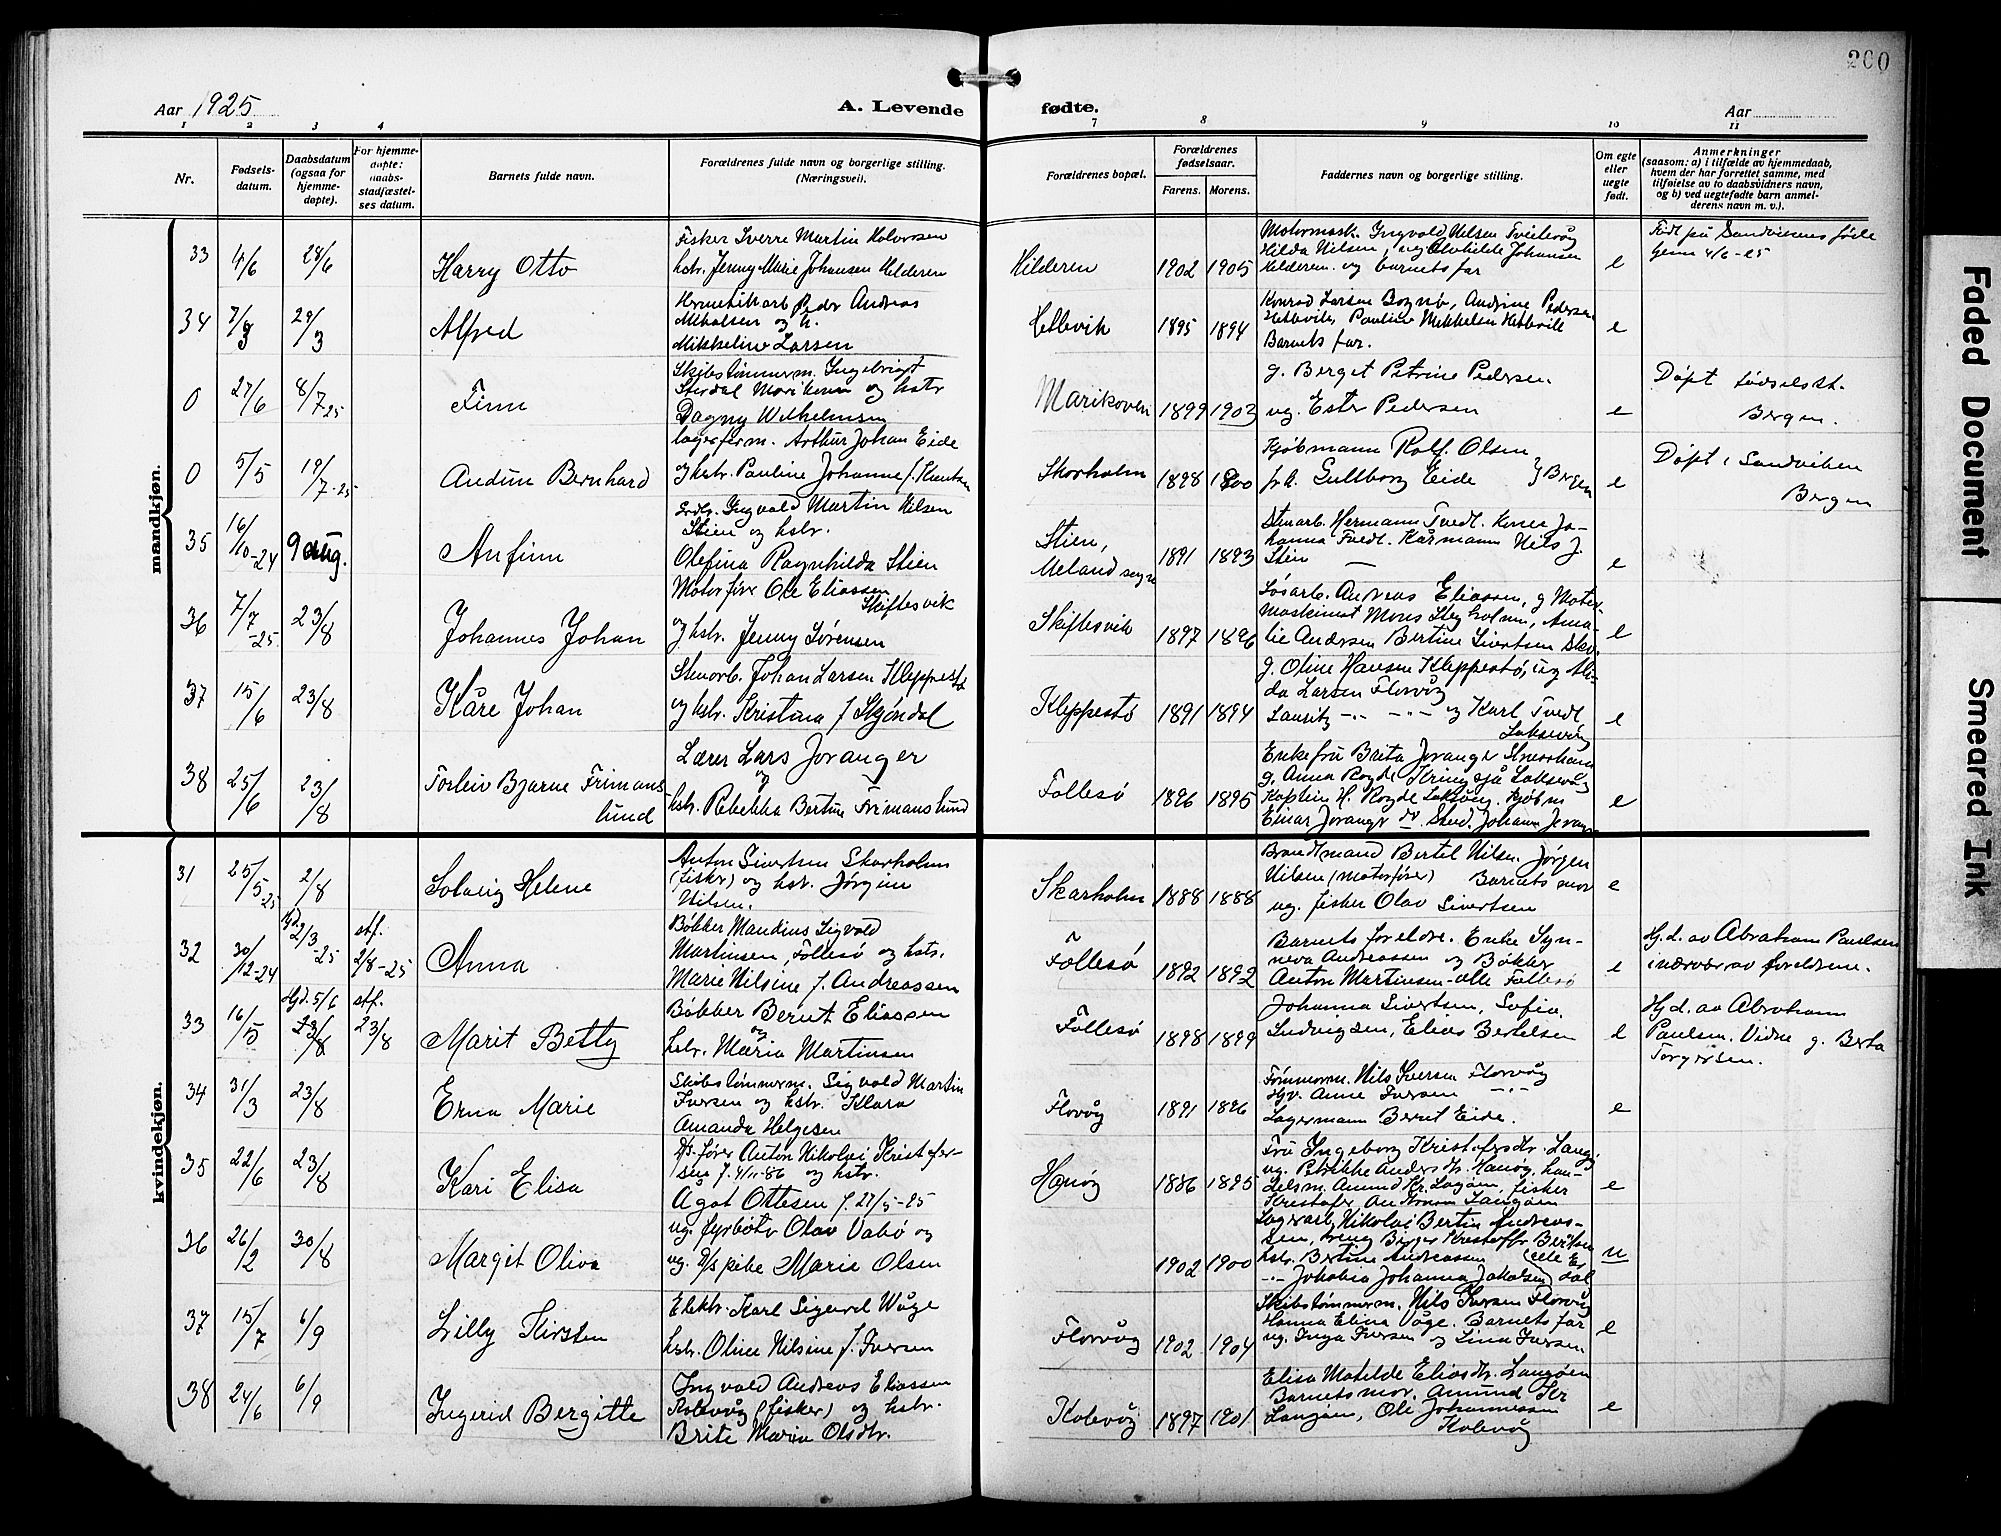 200
Aar 1925
A. Levende fødte.
Aar
1 2 3 4 7 8 9 10 11
Nr.
Fødsels-
datum.
Daabsdatum
(ogsaa for
hjemme-
døpte).
For hjemme-
døpte:
daabs-
stadfæstel-
ses datum.
Barnets fulde navn.
Forældrenes fulde navn og borgerlige stilling.
(Næringsvei).
Forældrenes bopæl.
Forældrenes
fødselsaar.
Farens. Morens.
Faddernes navn og borgerlige stilling.
Om egte
eller
uegte
født.
Anmerkninger
(saasom: a) i tilfælde av hjemmedaab,
hvem der har forrettet samme, med
tilføielse av to daabsvidners navn,
og b) ved uegtefødte barn anmel-
derens navn m. v.).
mandkjøn.
33 4/6 28/6 Harry Otto
Fisker Sverre Martin
hstr. Jenny Marie Johansen Hilderen
Hilderen 1902 1905
Motormask. Ingvald Nilsen
Hilda Nilsen, ug Johansen
Hilderen og barnets far
e
Født på Sandvikens føde
hjem 4/6-25
34 7/3 29/3 Alfred
Hermetikarb. Peder Andreas
og h.
Mikkeline Larsen
Hetlevik 1895 1894
Konrad Larsen Andrine Pedersen
Hetlevik, Pauline Mikkelsen Hetlevik
Barnets far.
e
0 27/6 8/7-25 Finn
Skibstømmerm. Ingebrigt
og hstr
Dagny Wilhelmsen
Marikoven 1899 1903
g. Berget Petrine Pedersen.
ug. Ester Pedersen
e
Døpt fødselsst.
Bergen.
0 5/5 19/7-25 Audun Bernhard
lagerform. Arthur Johan Eide
og hstr. Pauline Johanne f. Knutsen
Skarholm 1898 1900
Kjøbmann Rolf Olsen
frk. Gullborg Eide } Bergen
e
Døpt i Sandviken
Bergen
35 16/10-24 9 aug. Anfinn
Ingvald Martin Nilsen
Stien og hstr.
Olefina Ragnhilda Stien
Stien,
Meland sogn
1891 1893
Stenarb. Hermann Tvedt. Kone Jo-
hanna Tvedt. Kårmann Nils J.
Stien —
e
36 7/7-25 23/8 Johannes Johan
Motorfører Ole Eliassen
Skiftesvik
og hstr. Jenny Sørensen
Skiftesvik 1897 1896
Løsarb. Andreas Eliassen, g Motor-
maskinist Mons Ama-
lie Andersen Bertine Sivertsen
e
37 15/6 23/8 Kåre Johan
Stenarb. Johan Larsen Kleppestø
og hstr. Kristina f Skjøndal
Kleppestø 1891 1894
g. Oline Hansen Kleppestø, ug
da Larsen Florvåg
Lauritz -"- -"- og Karl Tvedt
Laksevåg
e
38 25/6 23/8 Torleiv Bjarne Frimans
lund
Lærer Lars Joranger
og
hstr. Rebekka Bertine Frimanslund
Follesø 1896 1895
Enkefru Brita Joranger
g. Anna Røgde Kringsjå Laksevåg
Kaptein H. Røgde Laksevåg. Kjøbm
Einar Joranger Stud. Johann Joranger
e
kvindekjøn.
31 25/5-25 2/8 Solveig Helene
Anton Sivertsen Skarholm
(fisker) og hstr. Jørgine
Nilsen.
Skarholm 1888 1888
Brandtmand Bertel Nilsen. Jørgen
Nilsen (motorfører) Barnets mor
ug. fisker Olav Sivertsen
e
32 30/12-24 Hjd. 2/3-25 stf. 2/8-25 Anna
Bøkker Mandius Sigvald
Martinsen, Follesø og hstr.
Marie Nilsine f. Andreassen
Follesø 1892 1892
Barnets foreldre. Enke Syn-
neva Andreassen og Bøkker
Anton Martinsen - alle Follesø
e
Hj.d. av Abraham Paulsen
i nærvær av foreldrene.
33 16/5 Hjd. 5/6 23/8 stf. 23/8 Marit Betty
Bøkker Bernt Eliassen
og
hstr. Maria Martinsen
Follesø 1898 1899
Johanna Sivertsen, Sofia
Ludvigsen, Elias Bertelsen
e
Hj.d. av Abraham
Paulsen. Vidne g. Berta
Torgersen.
34 31/3 23/8 Erna Marie
Skibstømmerm. Sigvald Martin
Iversen og hstr. Klara
Amanda Helgesen
Florvåg 1891 1896
Tømmerm. Nils Iversen Florvåg
Hgv. Anne Iversen -"-
Lagermann Bernt Eide.
e
35 22/6 23/8 Kari Elisa
D/s. fører Anton Nikolai Kristofer-
sen f. 4/11-86 og hstr.
Agot Ottesen f. 27/5-95
Hanøy 1886 1895
Fru Ingeborg Kristofersdtr. Langø,
ug. Petrikke Andersdtr. Hanøy, han-
delsm. Amund Kr. Langøen, fisker
Kristofer Langøen
e
36 26/2 30/8 Margit Oliva
ug. fyrbøter Olav Vabø og
ug. D/s pike Marie Olsen
1902 1900
Lagerarb. Nikolai Bertin Andreas-
sen, Birger Kristoffer Bertin
hstr. Bertine Andreassen (alle Er
-"- Jakobia Johanna Jakobsen) dal
u
37 15/7 6/9 Lilly Kirsten
Elektr. Karl Sigurd Våge
hstr. Oline Nilsine f. Iversen
Florvåg 1902 1904
Skibstømmerm. Nils Iversen Florvåg
Hanna Elina Våge. Barnets far
ug. Inga Iversen og Lina Iversen
e
38 24/6 6/9 Ingerid Bergitte
Ingvald Andreas Eliassen
Kolevåg (fisker) og hstr.
Brite Maria Olsdtr.
Kolevåg 1897 1901
Elisa Matilde Eliasdtr. Langøen
Barnets mor. Amund Kr
Langøen, Ole Johannessen
Kolevåg
e
Faded Document
Smeared Ink